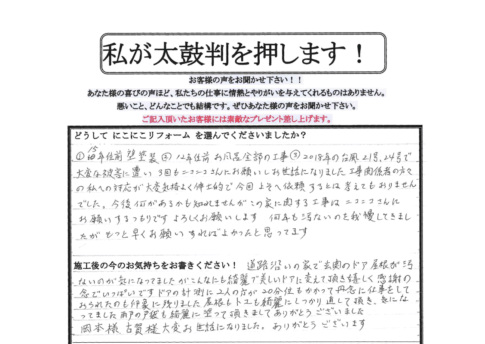 私が太鼓判を押します！
お客様の声をお聞かせ下さい！！
あなた様の喜びの声ほど、私たちの仕事に情熱とやりがいを与えてくれるものはありません。
悪いこと、どんなことでも結構です。ぜひあなた様の声をお聞かせ下さい。
ご記入頂いたお客様には素敵なプレゼント差し上げます。
どうして にこにこリフォーム を選んでくださいましたか？
年位前 壁塗装 ② 12年位前 お風呂全部の工事 ③ 2018年の台風21号、24号で
大変な被害に遭い 3回もニコニコさんにお願いしお世話になりました 工事関係者の方々
の私への対応が大変気持よく紳士的で今回よそへ依頼するとは考えてもおりません
でした。今後何があるかも知れませんがこの家に関する工事はニコニコさんに
お願いするつもりです よろしくお願いします 何年も汚ないのを我慢してきまし
たが もっと早くお願いすればよかったと思ってます
施工後の今のお気持ちをお書きください！ 道路沿いの家で玄関のドア屋根が汚
ないのが気になってましたがこんなにも綺麗で美しいドアに変えて頂き嬉しく感謝の
念でいっぱいです ドアの計測に2人の方が20分位もかかって丹念に仕事をして
おられたのも印象に残りました 屋根も下も綺麗にしっかり直して頂き、気にな
ってました雨戸の戸袋も綺麗に塗って頂きましてありがとうございました
岡本様 古賀様 大変お世話になりました。ありがとうございます